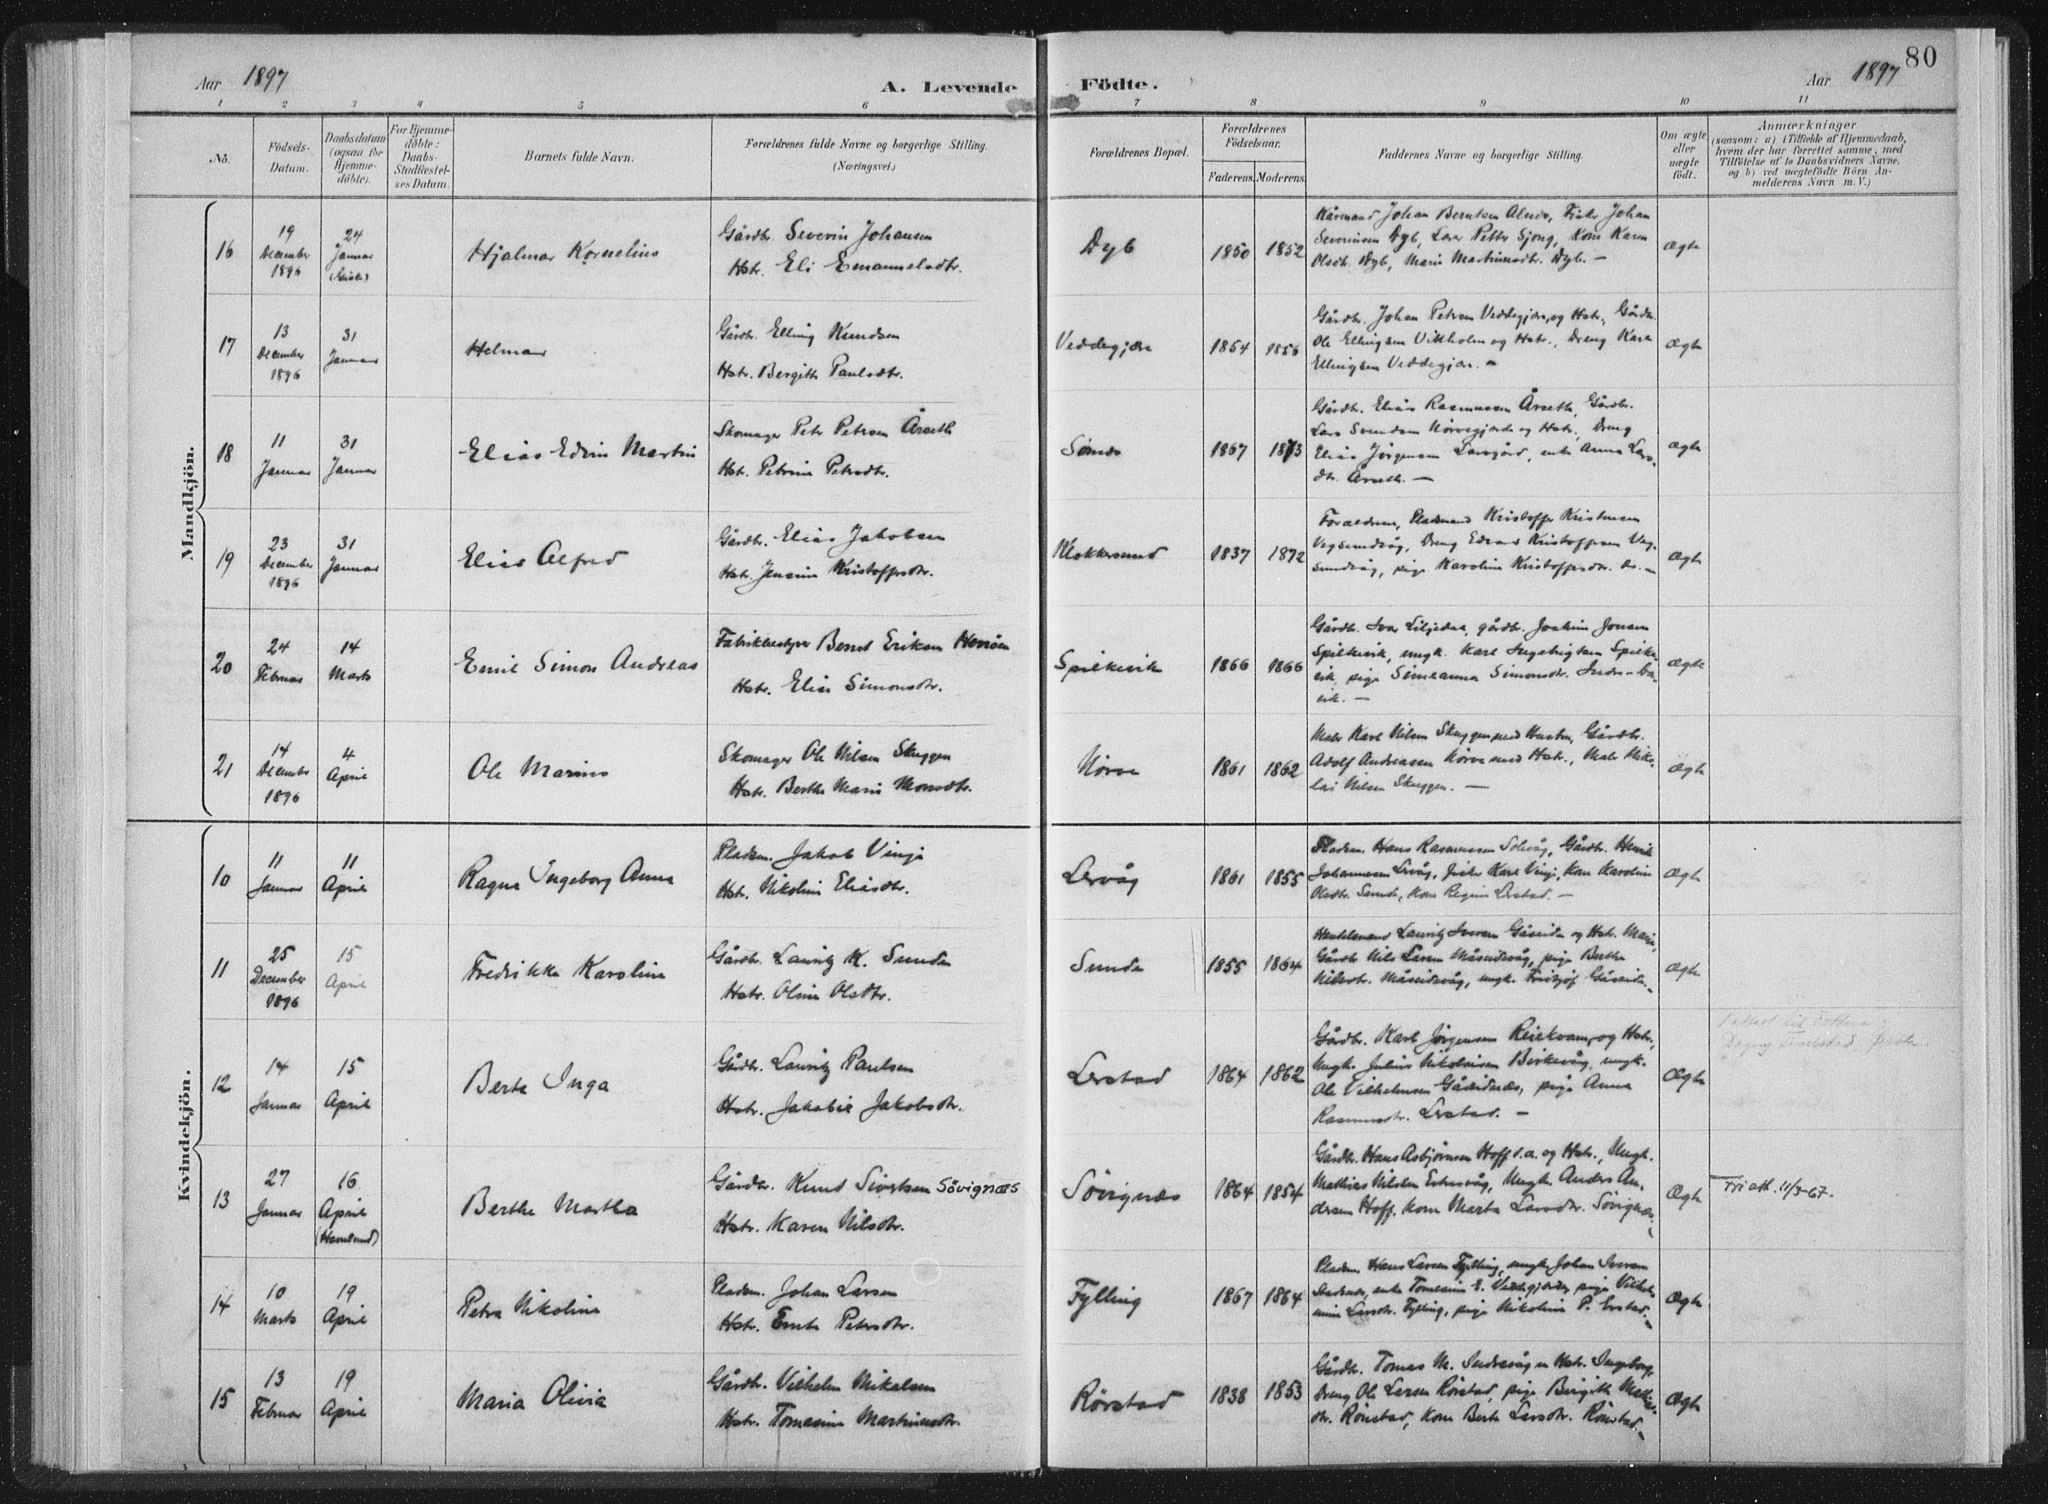 Aar 1897
A. Levende Födte.
Aar 1897
80
1 2 3 4 5 6 7 8 9 10 11
No.
Födsels-Datum.
Daabsdatum (ogsaa för Hjemme-döbte).
For Hjemme-döbte: Daabs-Stadfæstel-ses Datum.
Barnets fulde Navn.
Forældrenes fulde Navne og borgerlige Stilling.
(Næringsvei.)
Forældrenes Bopæl.
Forældrenes Födselsaar.
Faderens. Moderens.
Faddernes Navne og borgerlige Stilling.
Om ægte eller uægte födt.
Anmærkninger
(saasom: a) i Tilfælde af Hjemmedaab,
hvem der har forrettet samme, med
Tilföielse af to Daabsvidners Navne,
og b) ved uægtefödte Börn An-
melderens Navn m. V.)
Mandkjön.
16 19 December 1896 24 Januar Hjalmar Kornelius Gårdbr. Severin Johansen
Hstr. Eli Emanuelsdtr. Dyb 1850 1852
Kårmand Johan Berntsen Alnes, Fisker Johan
Severinsen Dyb, Lærer Petter Sjong, Kone Karen
Olsdtr. Dyb, Marie Martinusdtr. Dyb. — Ægte
17 13 December 1896 31 Januar Helmar Gårdbr. Elling Knudsen
Hstr. Bergitte Paulsdtr. Veddegjær 1854 1856
Gårdbr. Johan Petersen Veddegjær og Hstr., Gårdbr.
Ole Ellingsen Vikholm og Hstr., Dreng Karl
Ellingsen Veddegjær. — Ægte
18 11 Januar 31 Januar Elias Edvin Martin Skomager Peter Petersen Årseth
Hstr. Petrine Petersdtr. 1867 1873
Gårdbr. Elias Rasmussen Årseth, Gårdbr.
Lars Svendsen Nørvegjærde og Hstr., Dreng
Elias Jørgensen, enke Anna Lars-
dtr. Årseth. — Ægte
19 23 December 1896 31 Januar Elias Alfred Gårdbr. Elias Jakobsen
Hstr. Jensine Kristoffersdtr. Klokkersund 1837 1872
Forældrene, Pladsmand Kristoffer Kristensen
Vegsundvåg, Dreng Edvard Kristoffersen Veg-
sundvåg, pige Karoline Kristoffersdtr. ds. — Ægte
20 24 Februar 14 Marts Emil Simon Andreas Fabrikbestyrer Bernt Eriksen Herrøen
Hstr. Elise Simonsdtr. Spilkevik 1866 1866
Gårdbr. Ivar Liljedal, gårdbr. Joakim Jonsen
Spilkevik, ungk. Karl Ingebrigtsen Spilke-
vik, pige Simeanna Simonsdtr. Indre-
vik. — Ægte
21 14 December 1896 4 April Ole Marius Skomager Ole Nilsen Skuggen
Hstr. Berthe Marie Monsdtr. Nørve 1861 1862
Maler Karl Nilsen Skuggen med Hustru, Gårdbr.
Adolf Andreassen Nørve med Hstr., Maler Niko-
lai Nilsen Skuggen. — Ægte
Kvindekjön.
10 11 Januar 11 April Ragna Ingeborg Anna Pladsm. Jakob Vinje
Hstr. Nikoline Eliasdtr. Lervåg 1861 1855
Pladsm. Hans Rasmussen Solevåg, Gårdbr. Henrik
Johannessen Lervåg, fisker Karl Vinje, Kone Karoline
Olsdtr. Sunde, Kone Regine Lerstad. — Ægte
11 25 December 1896 15 April Fredrikke Karoline Gårdbr. Lauritz K. Sunde
Hstr. Oline Olsdtr. Sunde 1855 1864
Handelsmand Lauritz Iversen Gåseide og Hstr. Marie,
Gårdbr. Nils Larsen Måseidvåg, pige Berthe
Nilsdtr. Måseidvåg, ungk. Fritjof Gåseide. Ægte
12 14 Januar 15 April Berte Inga Gårdbr. Lauritz Paulsen
Hstr. Jakobie Jakobsdtr. Lerstad 1864 1862
Gårdbr. Karl Jørgensen Reiekvam og Hstr.,
Ungk. Julius Nikolaisen Birkevåg, ungk.
Ole Vilhelmsen Gåseidnæs, pige Anna
Rasmusdtr. Lerstad. — Ægte
13 27 Januar 16 April Berthe Martha Gårdbr. Knud Sivertsen Sövignæs
Hstr. Karen Nilsdtr. Sövignæs 1864 1854
Gårdbr. Hans Asbjørnsen Hoff s.a. og Hstr., Ungk.
Mathias Nilsen, Ungk. Anders An-
dersen Hoff, Kone Marte Larsdtr. Sövignæs. Ægte Fri att. 11/3-67.
14 10 Marts 19 April Petra Nikoline Pladsm. Johan Larsen
Hstr. Ernte Petersdtr. Fylling 1867 1864
Pladsm. Hans Larsen Fylling, ungk. Johan Iversen
enke Tomasine E. Veddegjærde, pige Vilhel-
mine Larsdtr. Fylling, pige Nikoline P. Erstad. Ægte
15 13 Februar 19 April Maria Olivia Gårdbr. Vilhelm Mikalsen
Hstr. Tomasine Martinusdtr. Rörstad 1838 1853
Gårdbr. Tomas M. Indrevåg og Hstr. Ingeborg,
Dreng Ole Larsen Rörstad, pige Birgith
dtr. Rörstad, Kone Berte Larsdtr. Rörstad. Ægte